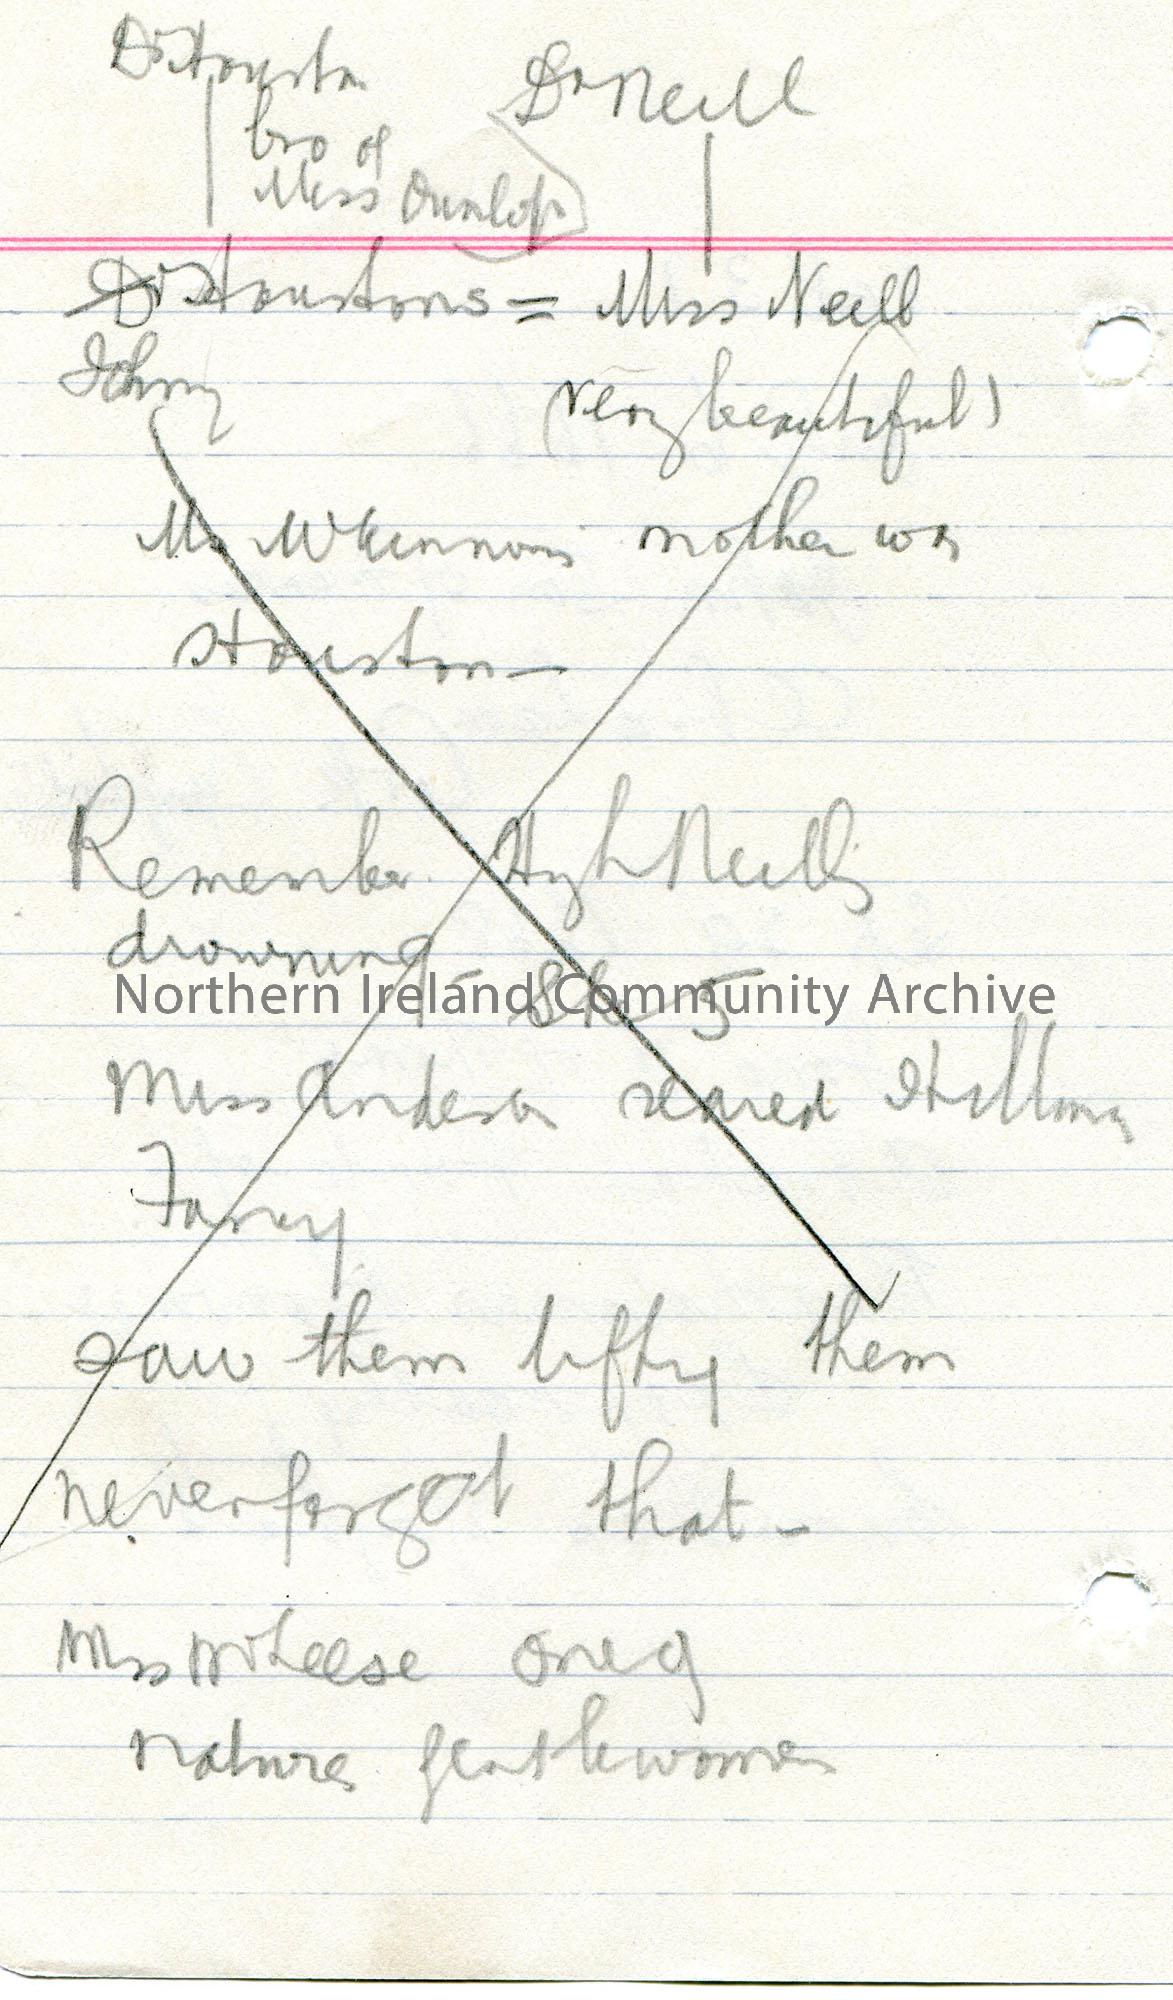 Dr Houston Dr Neill
bro of
Miss Dunlop
Dr Houstons = Miss Neill
Johnny (very beautiful)
Mr McKinnons mother was
Houston —
Remember Hugh Neill's
drowning
5
Miss Anderson reared
saw them lifting them
never forgot that –
McLeese one of
natures gentlewomen
Northern Ireland Community Archive